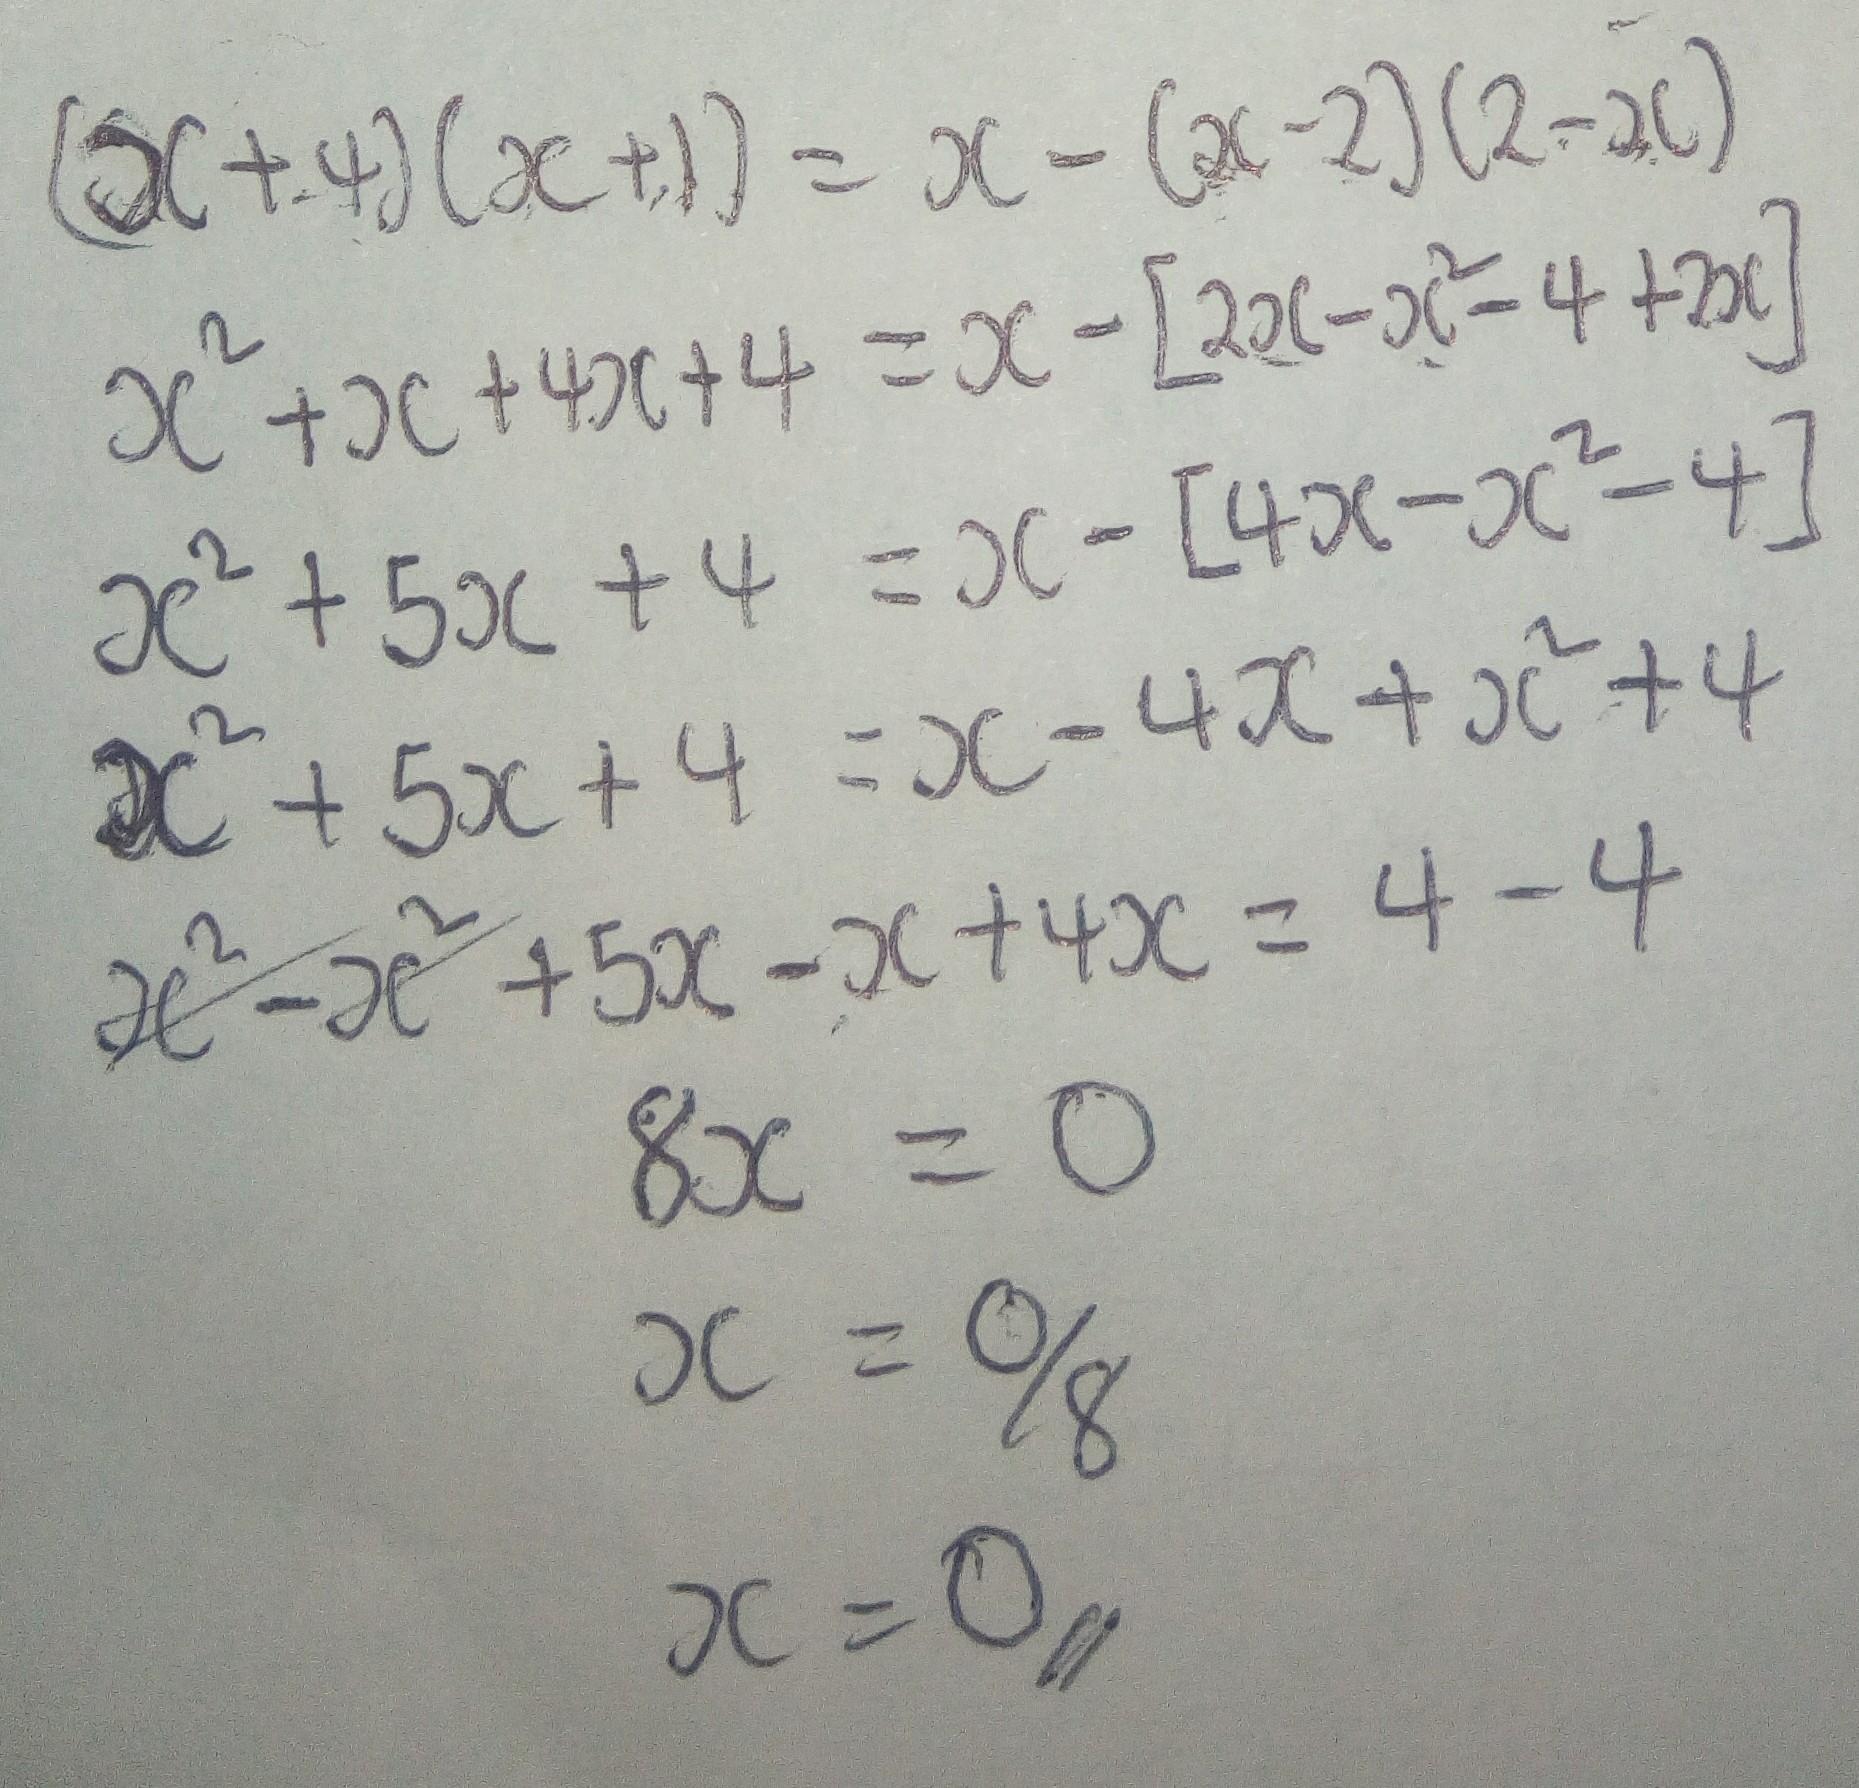 (x+4)(x+1) = x - (x-2)(2-x)
x² + x + 4x + 4 = x - [2x - x² - 4 + 2x]
x² + 5x + 4 = x - [4x - x² - 4]
x² + 5x + 4 = x - 4x + x² + 4
x² - x² + 5x - x + 4x = 4 - 4
8x = 0
x = 0/8
x = 0//